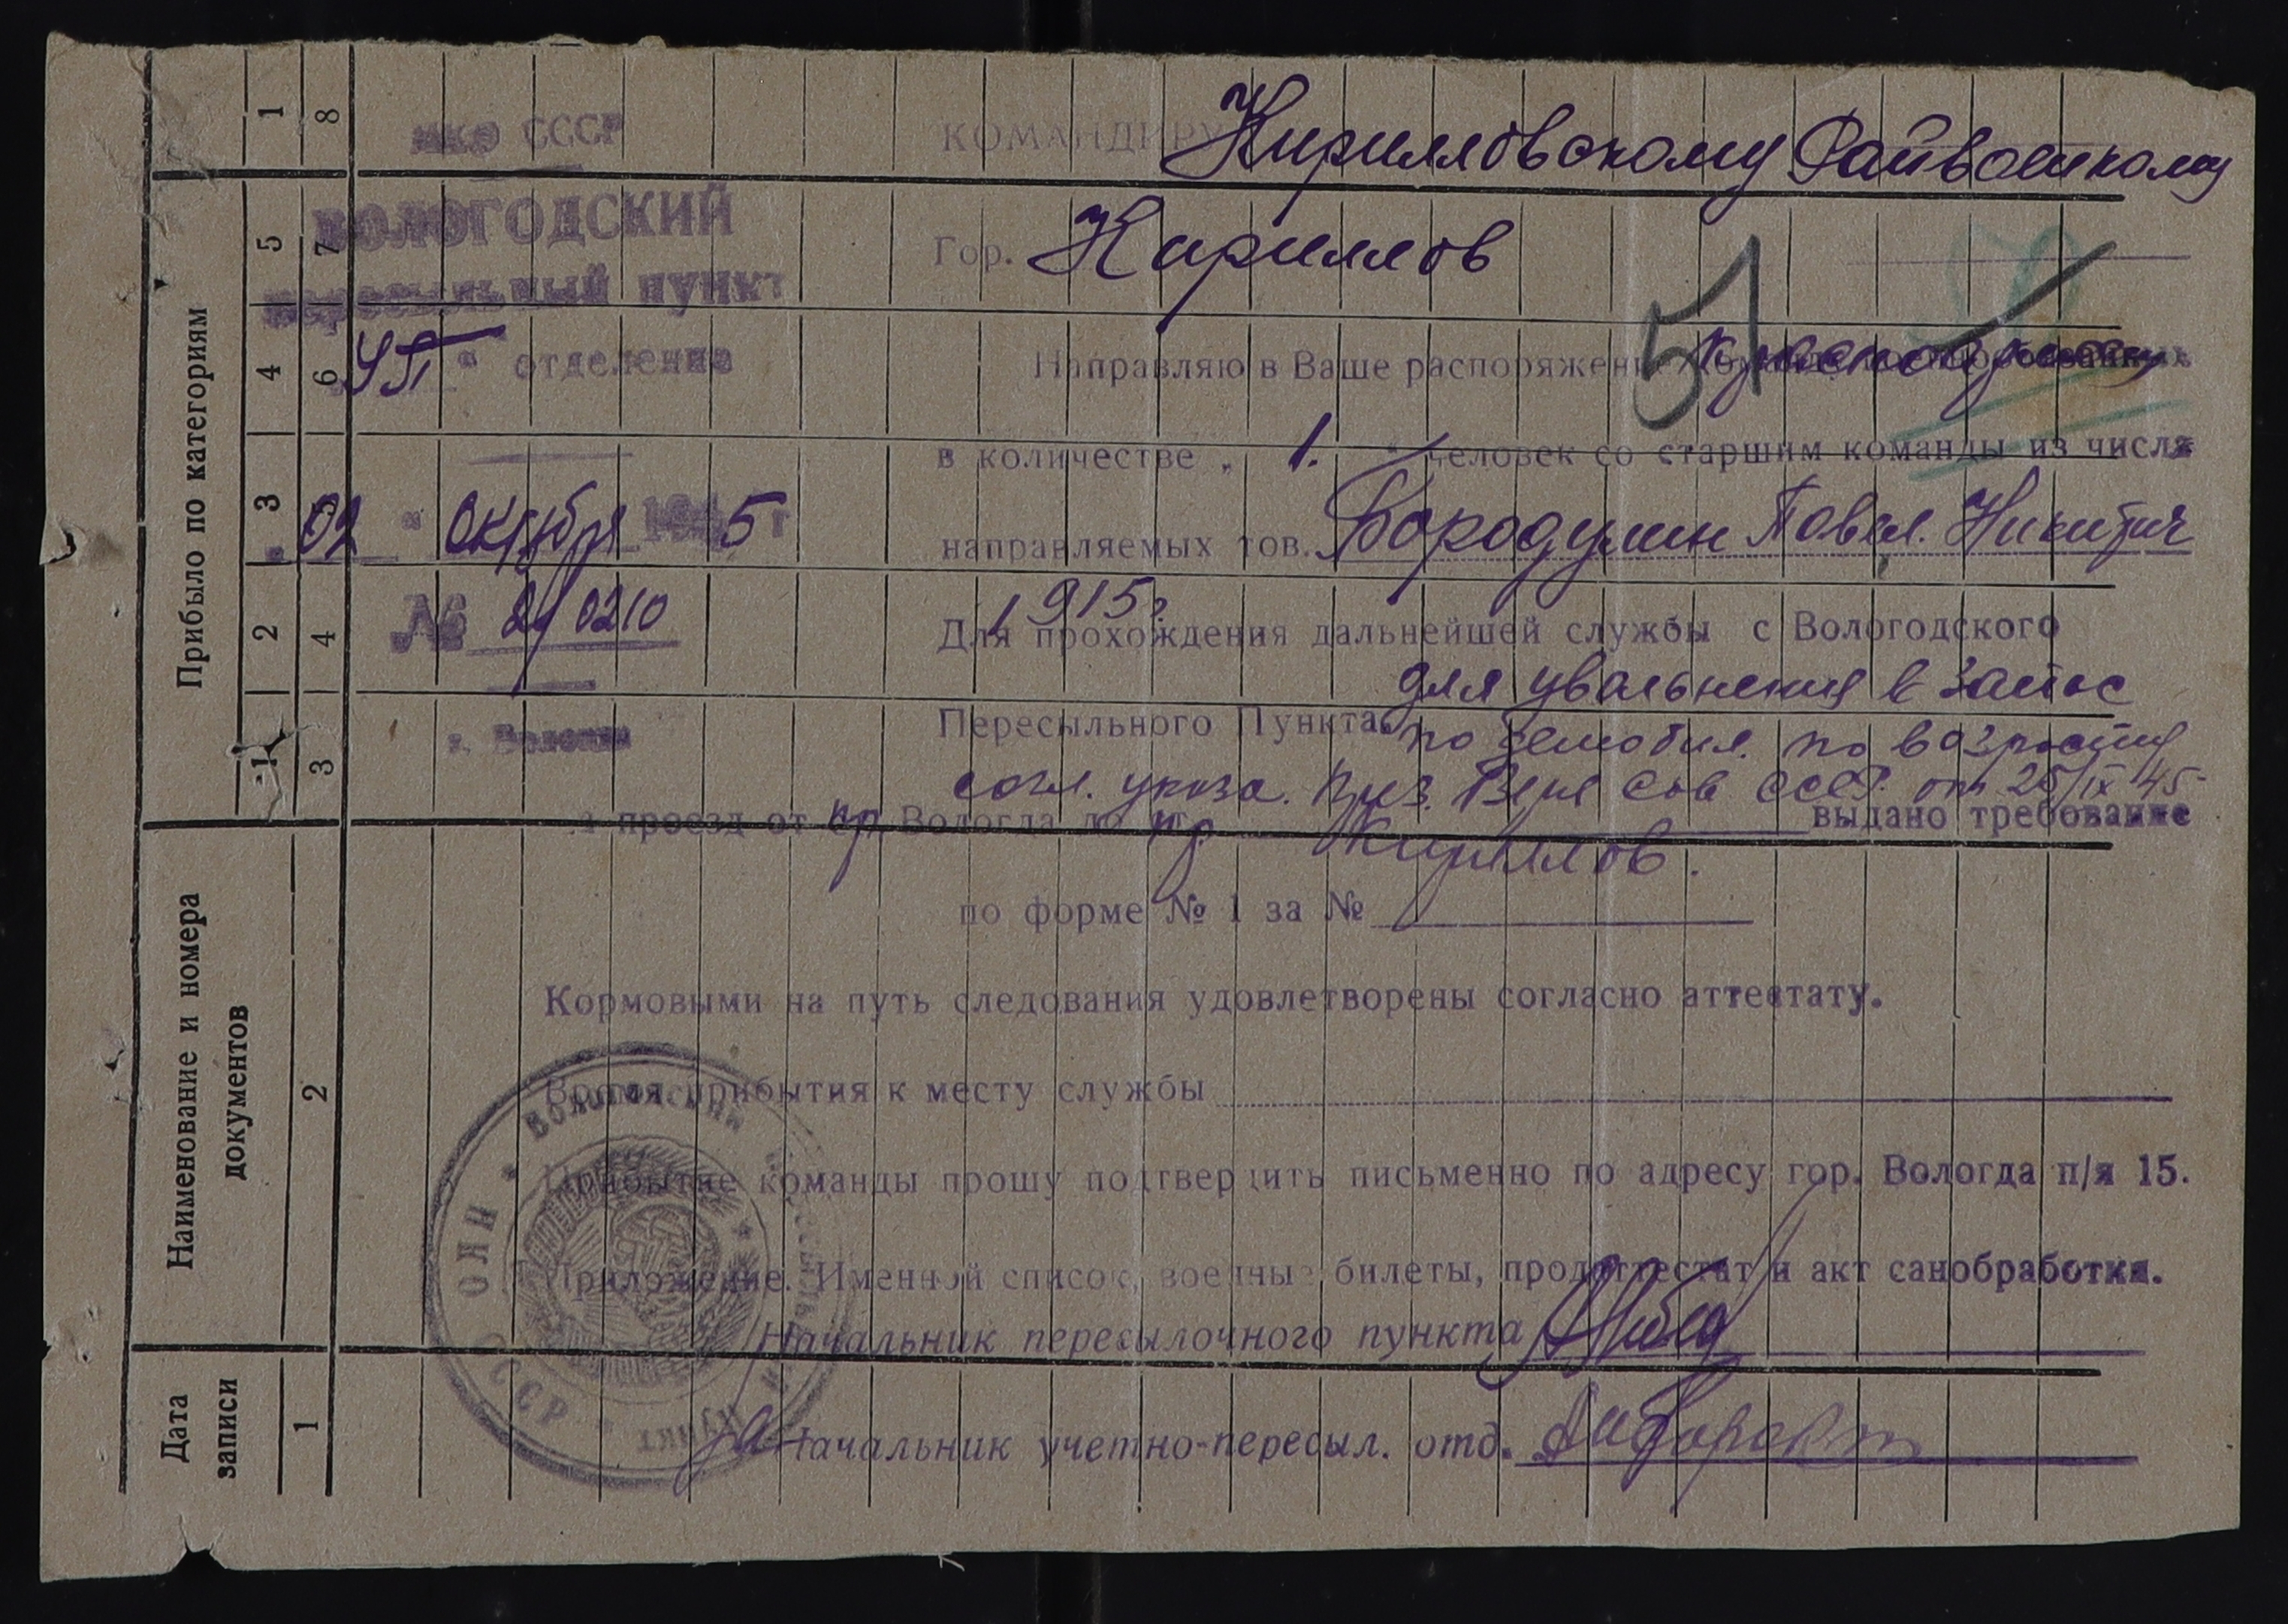 НКО СССР
ВОЛОГОДСКИЙ
пересыльный пункт
УП " отделение
"02" Октября 1945 г
№ 2/0210
г. Вологда
КОМАНДИРУ Кирилловскому Райвоенкому
Гор. Кириллов
51
Направляю в Ваше распоряжение
в количестве „ 1. " человек со старшим команды из числа
направляемых тов. Бородулин Повел. Никитич
1915 г
Для прохождения дальнейшей службы с Вологодского
для увольнения в запас
Пересыльного Пункта.
по демобил. по возрасту
согл. указа. През. Верх Сов СССР. от 25/IX 45
а проезд от пр. Вологда до пр Кириллов. выдано требование
по форме № 1 за №
Кормовыми на путь следования удовлетворены согласно аттестату.
Время прибытия к месту службы
Прибытие команды прошу подтвердить письменно по адресу гор. Вологда п/я 15.
Приложение. Именной список, военные билеты, продаттестат и акт санобработки.
Начальник пересылочного пункта
Начальник учетно-пересыл. отд.
ВОЛОГОДСКИЙ ПЕРЕСЫЛЬНЫЙ ПУНКТ * СССР
Прибыло по категориям
1 5 4 3 2 1
8 7 6 4 3
Наименование и номера
документов
2
Дата
записи
1